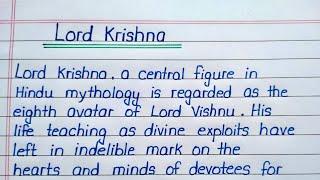 Lord Krishna
Lord Krishna, a central figure in
Hindu mythology is regarded as the
eighth avatar of Lord Vishnu. His
life teaching as divine exploits have
left in indelible mark on the
hearts and minds of devotees for